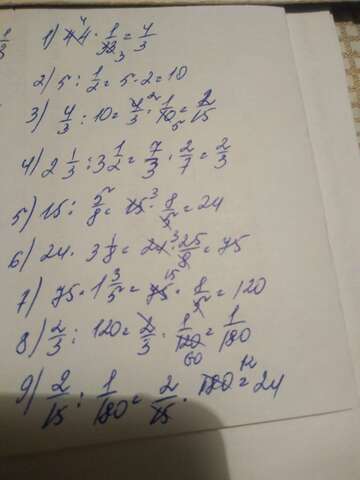 1) 44 · 1/33 = 4/3
2) 5 : 1/2 = 5 · 2 = 10
3) 4/3 : 10 = 4/3 · 1/10 = 2/15
4) 2 1/3 : 3 1/2 = 7/3 · 2/7 = 2/3
5) 15 : 5/8 = 15 · 8/5 = 24
6) 24 · 3 1/8 = 24 · 25/8 = 75
7) 75 · 1 3/5 = 75 · 8/5 = 120
8) 2/3 : 120 = 2/3 · 1/120 = 1/180
9) 2/15 : 1/180 = 2/15 · 180 = 24